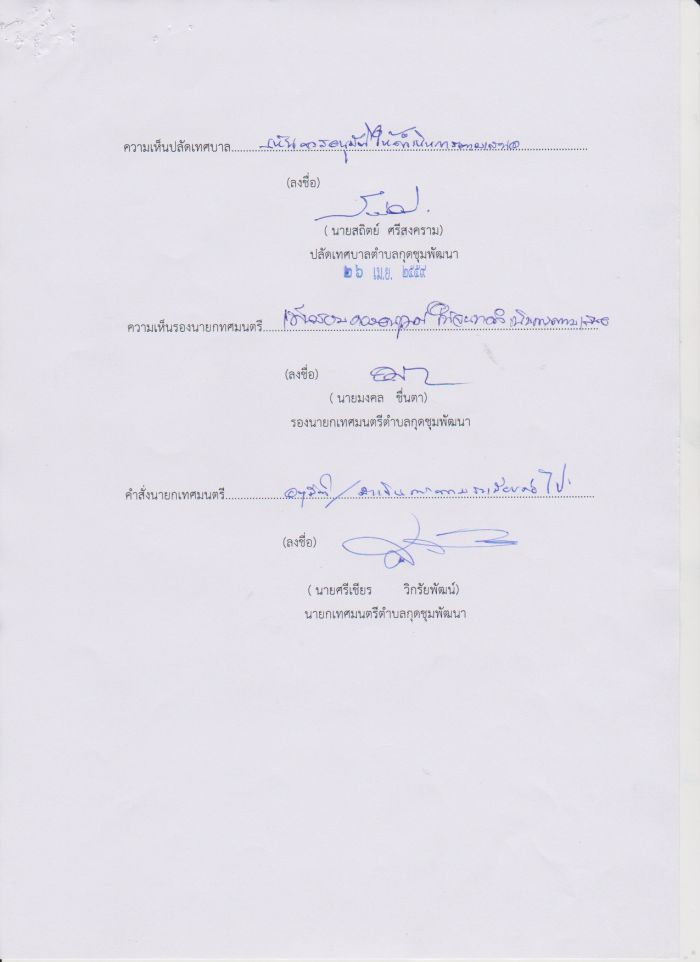 ความเห็นปลัดเทศบาล เห็นควรอนุมัติให้ดำเนินการตามเสนอ
(ลงชื่อ)
( นายสถิตย์ ศรีสงคราม)
ปลัดเทศบาลตำบลกุดชุมพัฒนา
๒๖ เม.ย. ๒๕๕๙
ความเห็นรองนายกทศมนตรี เห็นชอบ ควรอนุมัติ
(ลงชื่อ)
( นายมงคล ชื่นตา)
รองนายกเทศมนตรีตำบลกุดชุมพัฒนา
คำสั่งนายกเทศมนตรี อนุมัติ/ดำเนินการตามระเบียบฯ ไป
(ลงชื่อ)
( นายศรีเชียร วิกรัยพัฒน์)
นายกเทศมนตรีตำบลกุดชุมพัฒนา